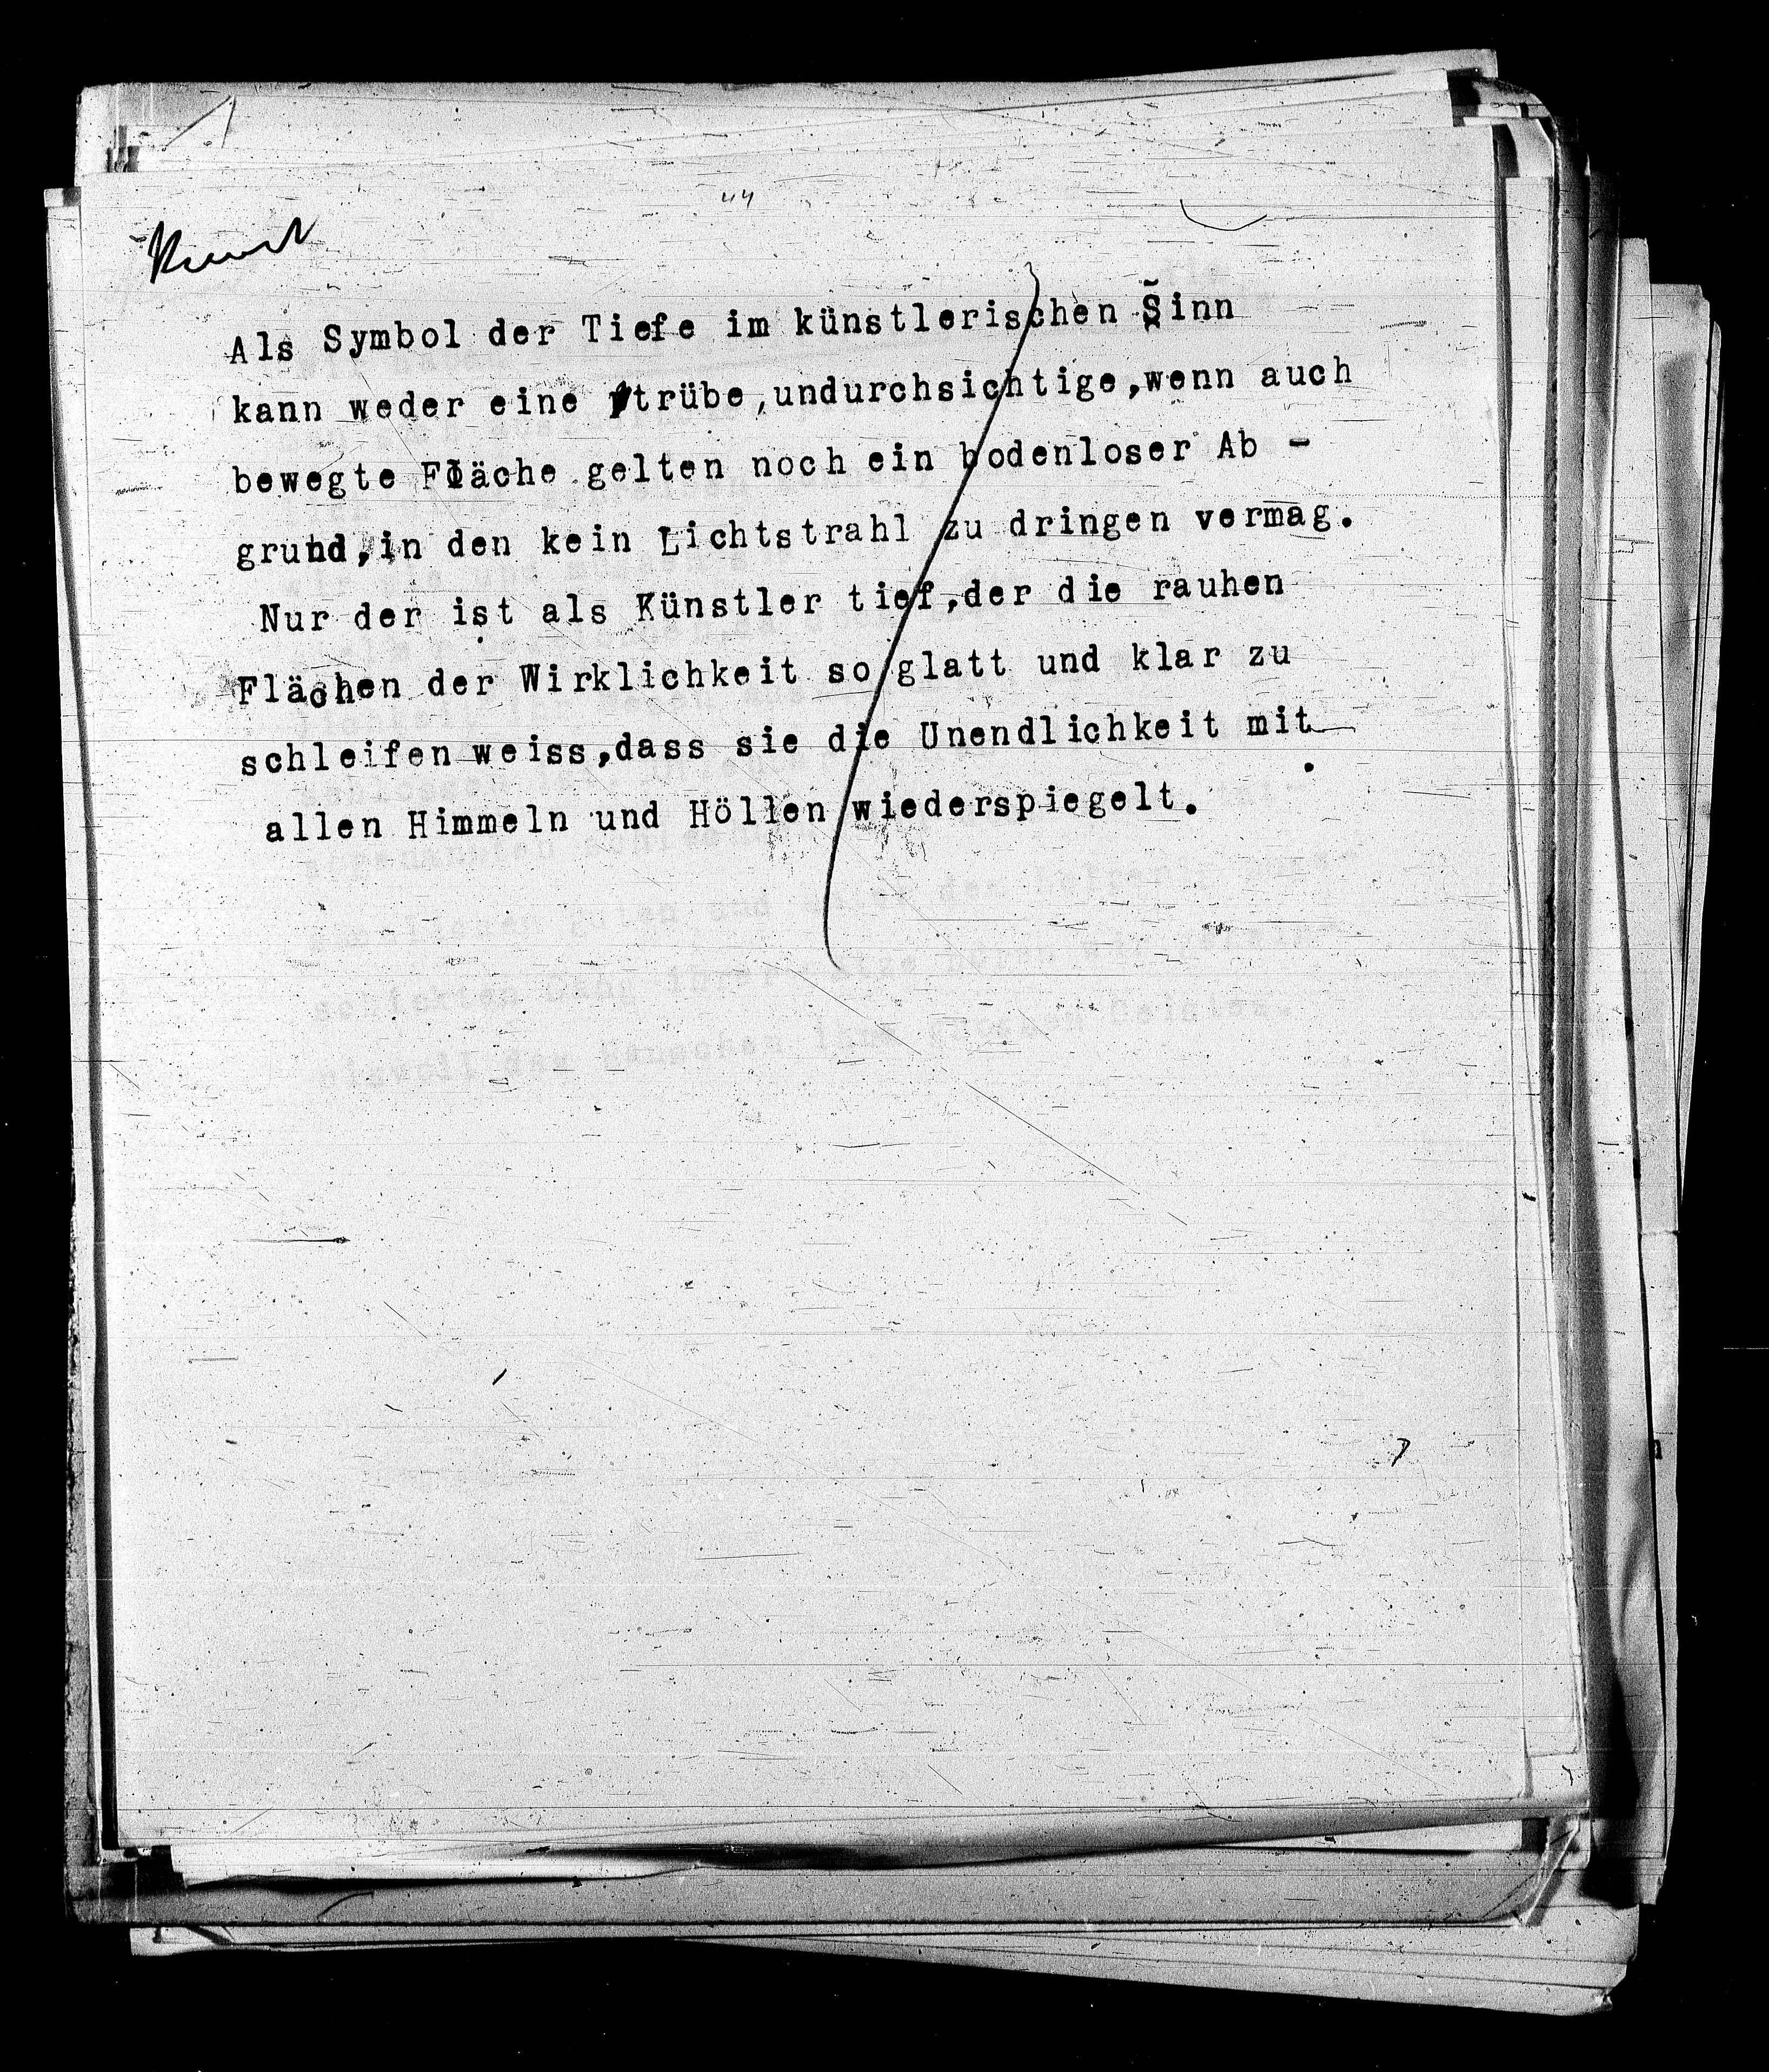 44
Kunst
Als Symbol der Tiefe im künstlerischen Sinn
kann weder eine trübe,undurchsichtige,wenn auch
bewegte Fläche gelten noch ein bodenloser Ab -
grund,in den kein Lichtstrahl zu dringen vermag.
Nur der ist als Künstler tief,der die rauhen
Flächen der Wirklichkeit so glatt und klar zu
schleifen weiss,dass sie die Unendlichkeit mit
allen Himmeln und Höllen wiederspiegelt.